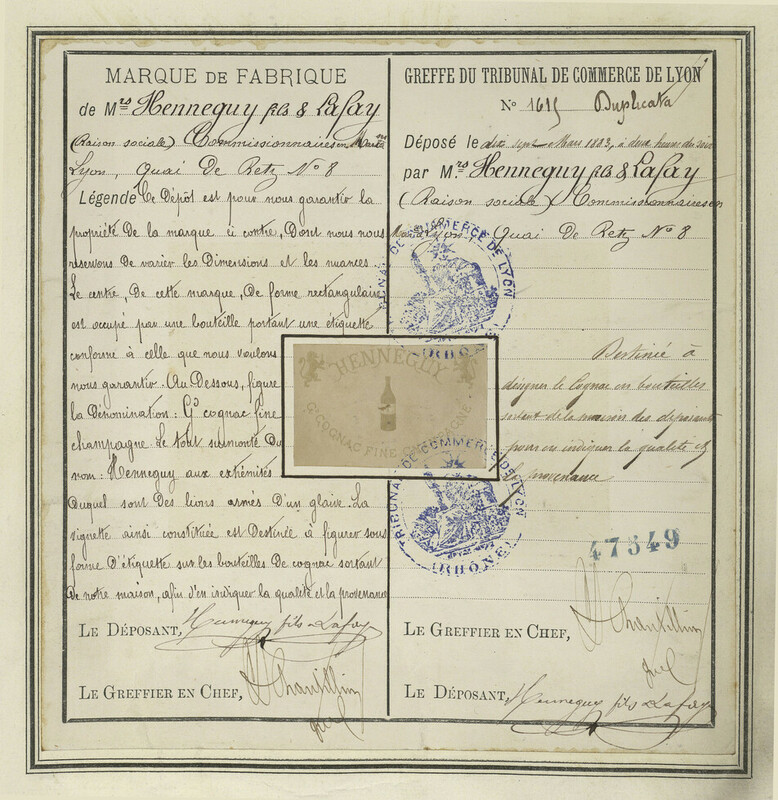 MARQUE DE FABRIQUE
de Mrs Henneguy fils & Lafay
(Raison sociale) Commissionnaires en Mdses
Lyon, Quai De Retz No 8
Légende Ce Dépôt est pour nous garantir la
propriété de la marque ci contre, Dont nous nous
réservons de varier les Dimensions et les nuances.
Le centre, de cette marque, De forme rectangulaire
est occupé par une bouteille portant une étiquette
conforme à celle que nous voulons
nous garantir. Au Dessous, figure
la Dénomination : Gd cognac fine
champagne. Le tout surmonté Du
nom : Henneguy aux extrémités
Duquel sont Des lions armés D'un glaive. La
vignette ainsi constituée est Destinée à figurer sous
forme D'étiquette sur les bouteilles De cognac sortant
De notre maison, afin d'en indiquer la qualité et la provenance
LE DÉPOSANT, Henneguy fils & Lafay
LE GREFFIER EN CHEF,
HENNEGUY
Gd COGNAC FINE CHAMPAGNE
GREFFE DU TRIBUNAL DE COMMERCE DE LYON
No 1615 Duplicata
Déposé le dix sept Mars 1883, à deux heures du soir
par Mrs Henneguy fils & Lafay
(Raison sociale) Commissionnaires en
Mdses Lyon, Quai De Retz No 8
TRIBUNAL DE COMMERCE DE LYON
(RHÔNE)
Destinée à
désigner le Cognac en bouteilles
sortant de la maison des déposants
pour en indiquer la qualité et
la provenance
TRIBUNAL DE COMMERCE DE LYON
(RHÔNE)
47349
LE GREFFIER EN CHEF,
LE DÉPOSANT, Henneguy fils & Lafay